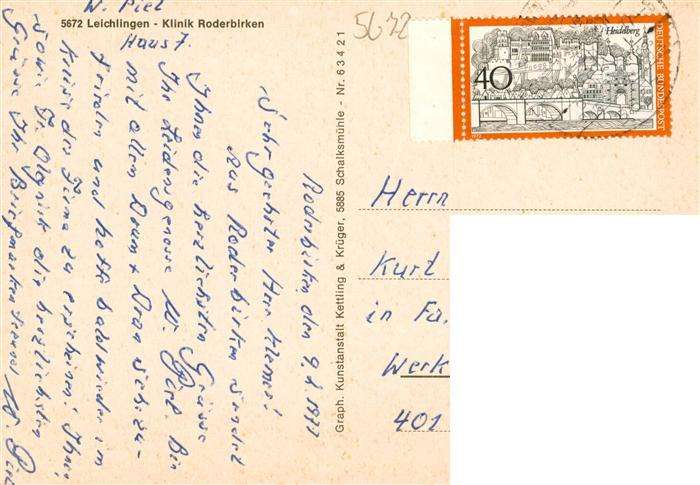 W. Piel
5672 Leichlingen - Klinik Roderbirken
Haus 7.
5672
Heidelberg
40
DEUTSCHE BUNDESPOST
Graph. Kunstanstalt Kettling & Krüger, 5885 Schalksmühle - Nr. 63421
Roderbirken den 9.1.1973
Sehr geehrter Herr
Aus Roderbirken sendet
Ihnen die herzlichsten Grüsse
Ihr Leidensgenosse W. Piel. Bin
mit allen Drum + Dran sehr zu-
frieden und hoffe bald wieder im
der Firma zu erscheinen. Ihnen
sowie die herzlichsten
Grüsse Ihr Briefmarkenfreund W. Piel
Herrn
Kurt
in Fa.
Werk
401